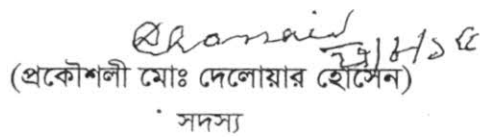 (প্রকৌশলী মোঃ দেলোয়ার হোসেন)
সদস্য